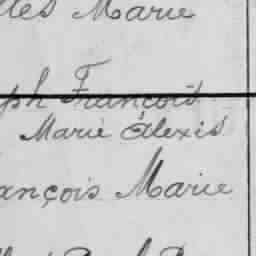 les Marie
ph François
Marie Alexis
ançois Marie